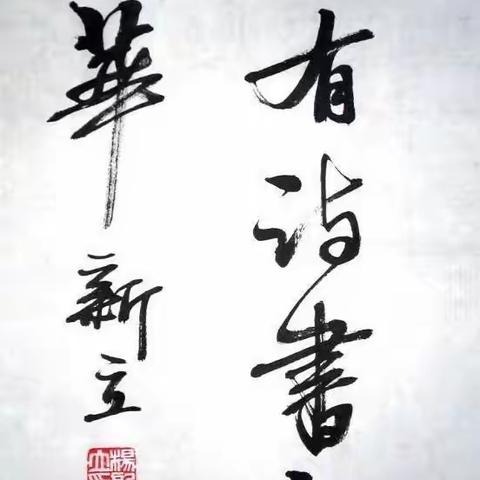 有诗書
華
新立